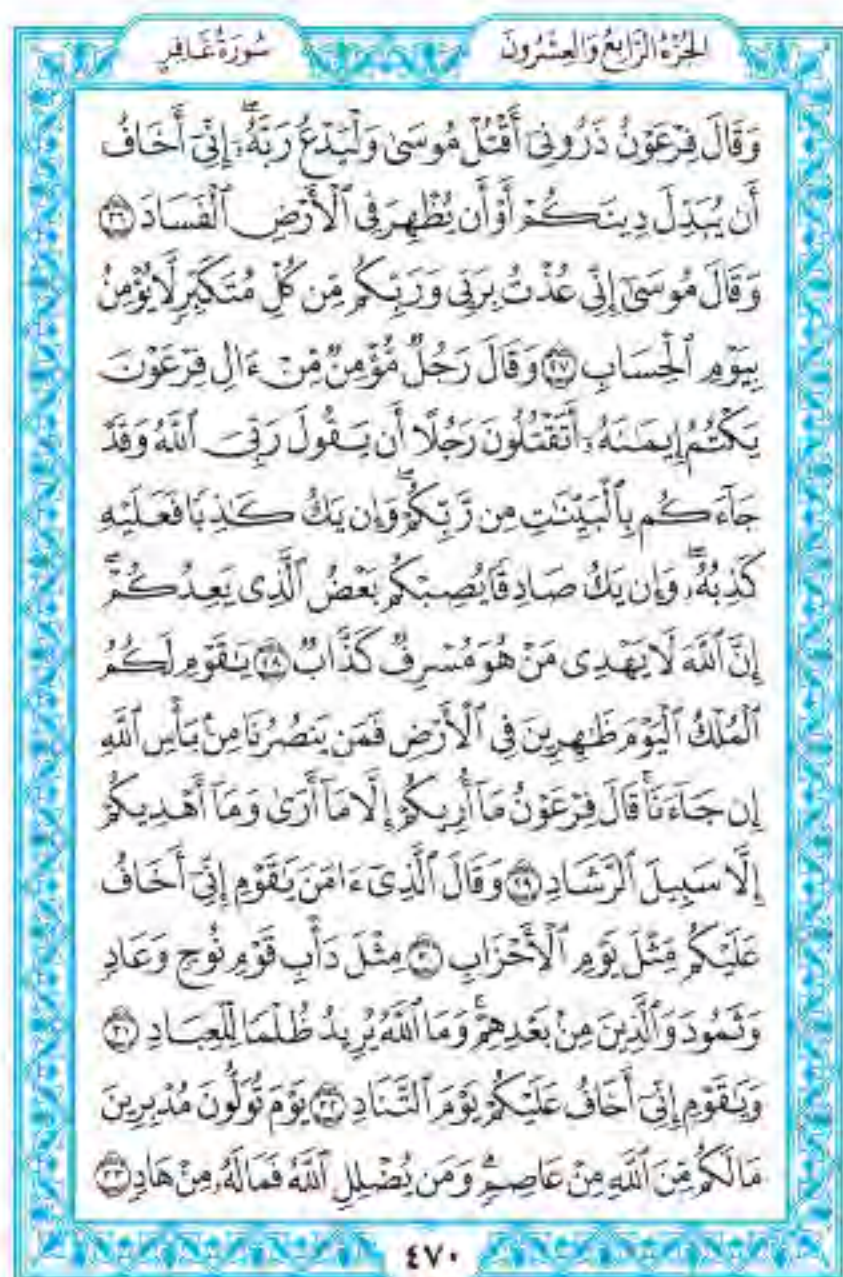 الجُزْءُ الرَّابِعُ وَالعِشْرُونَ
سُورَةُ غَافِر
وَقَالَ فِرْعَوْنُ ذَرُونِيٓ أَقْتُلْ مُوسَىٰ وَلْيَدْعُ رَبَّهُۥٓۖ إِنِّيٓ أَخَافُ
أَن يُبَدِّلَ دِينَكُمْ أَوْ أَن يُظْهِرَ فِي ٱلْأَرْضِ ٱلْفَسَادَ ٢٦
وَقَالَ مُوسَىٰٓ إِنِّي عُذْتُ بِرَبِّي وَرَبِّكُم مِّن كُلِّ مُتَكَبِّرٍ لَّا يُؤْمِنُ
بِيَوْمِ ٱلْحِسَابِ ٢٧ وَقَالَ رَجُلٌ مُّؤْمِنٌ مِّنْ ءَالِ فِرْعَوْنَ
يَكْتُمُ إِيمَٰنَهُۥٓ أَتَقْتُلُونَ رَجُلًا أَن يَقُولَ رَبِّيَ ٱللَّهُ وَقَدْ
جَآءَكُم بِٱلْبَيِّنَٰتِ مِن رَّبِّكُمْۖ وَإِن يَكُ كَٰذِبًا فَعَلَيْهِ
كَذِبُهُۥۖ وَإِن يَكُ صَادِقًا يُصِبْكُم بَعْضُ ٱلَّذِي يَعِدُكُمْۖ
إِنَّ ٱللَّهَ لَا يَهْدِي مَنْ هُوَ مُسْرِفٌ كَذَّابٌ ٢٨ يَٰقَوْمِ لَكُمُ
ٱلْمُلْكُ ٱلْيَوْمَ ظَٰهِرِينَ فِي ٱلْأَرْضِ فَمَن يَنصُرُنَا مِنۢ بَأْسِ ٱللَّهِ
إِن جَآءَنَاۚ قَالَ فِرْعَوْنُ مَآ أُرِيكُمْ إِلَّا مَآ أَرَىٰ وَمَآ أَهْدِيكُمْ
إِلَّا سَبِيلَ ٱلرَّشَادِ ٢٩ وَقَالَ ٱلَّذِيٓ ءَامَنَ يَٰقَوْمِ إِنِّيٓ أَخَافُ
عَلَيْكُم مِّثْلَ يَوْمِ ٱلْأَحْزَابِ ٣٠ مِثْلَ دَأْبِ قَوْمِ نُوحٍ وَعَادٍ
وَثَمُودَ وَٱلَّذِينَ مِنۢ بَعْدِهِمْۚ وَمَا ٱللَّهُ يُرِيدُ ظُلْمًا لِّلْعِبَادِ ٣١
وَيَٰقَوْمِ إِنِّيٓ أَخَافُ عَلَيْكُمْ يَوْمَ ٱلتَّنَادِ ٣٢ يَوْمَ تُوَلُّونَ مُدْبِرِينَ
مَا لَكُم مِّنَ ٱللَّهِ مِنْ عَاصِمٍۗ وَمَن يُضْلِلِ ٱللَّهُ فَمَا لَهُۥ مِنْ هَادٍ ٣٣
٤٧٠